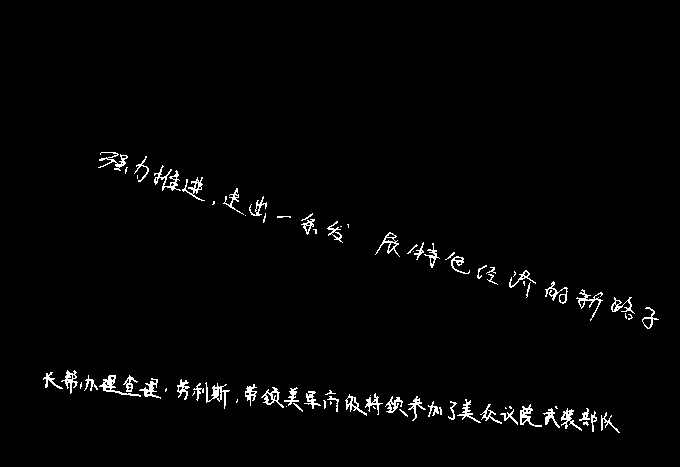 强力推进,走出一条发展特色经济的新路子
长帮办理查理·劳利斯,带领美军高级将领参加了美众议院武装部队